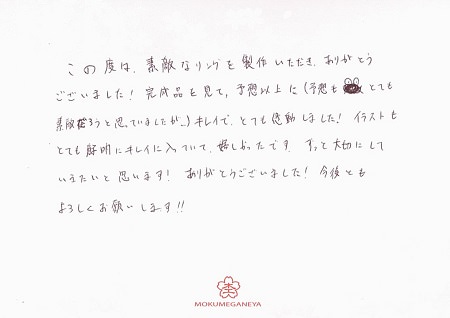 この度は、素敵なリングを製作いただき、ありがとう
ございました！完成品を見て、予想以上に（予想も とても
素敵だろうと思っていましたが…）キレイで、とても感動しました！イラストも
とても鮮明にキレイに入っていて、嬉しかったです。ずっと大切にして
いきたいと思います！ありがとうございました！今後とも
よろしくお願いします!!
MOKUMEGANEYA